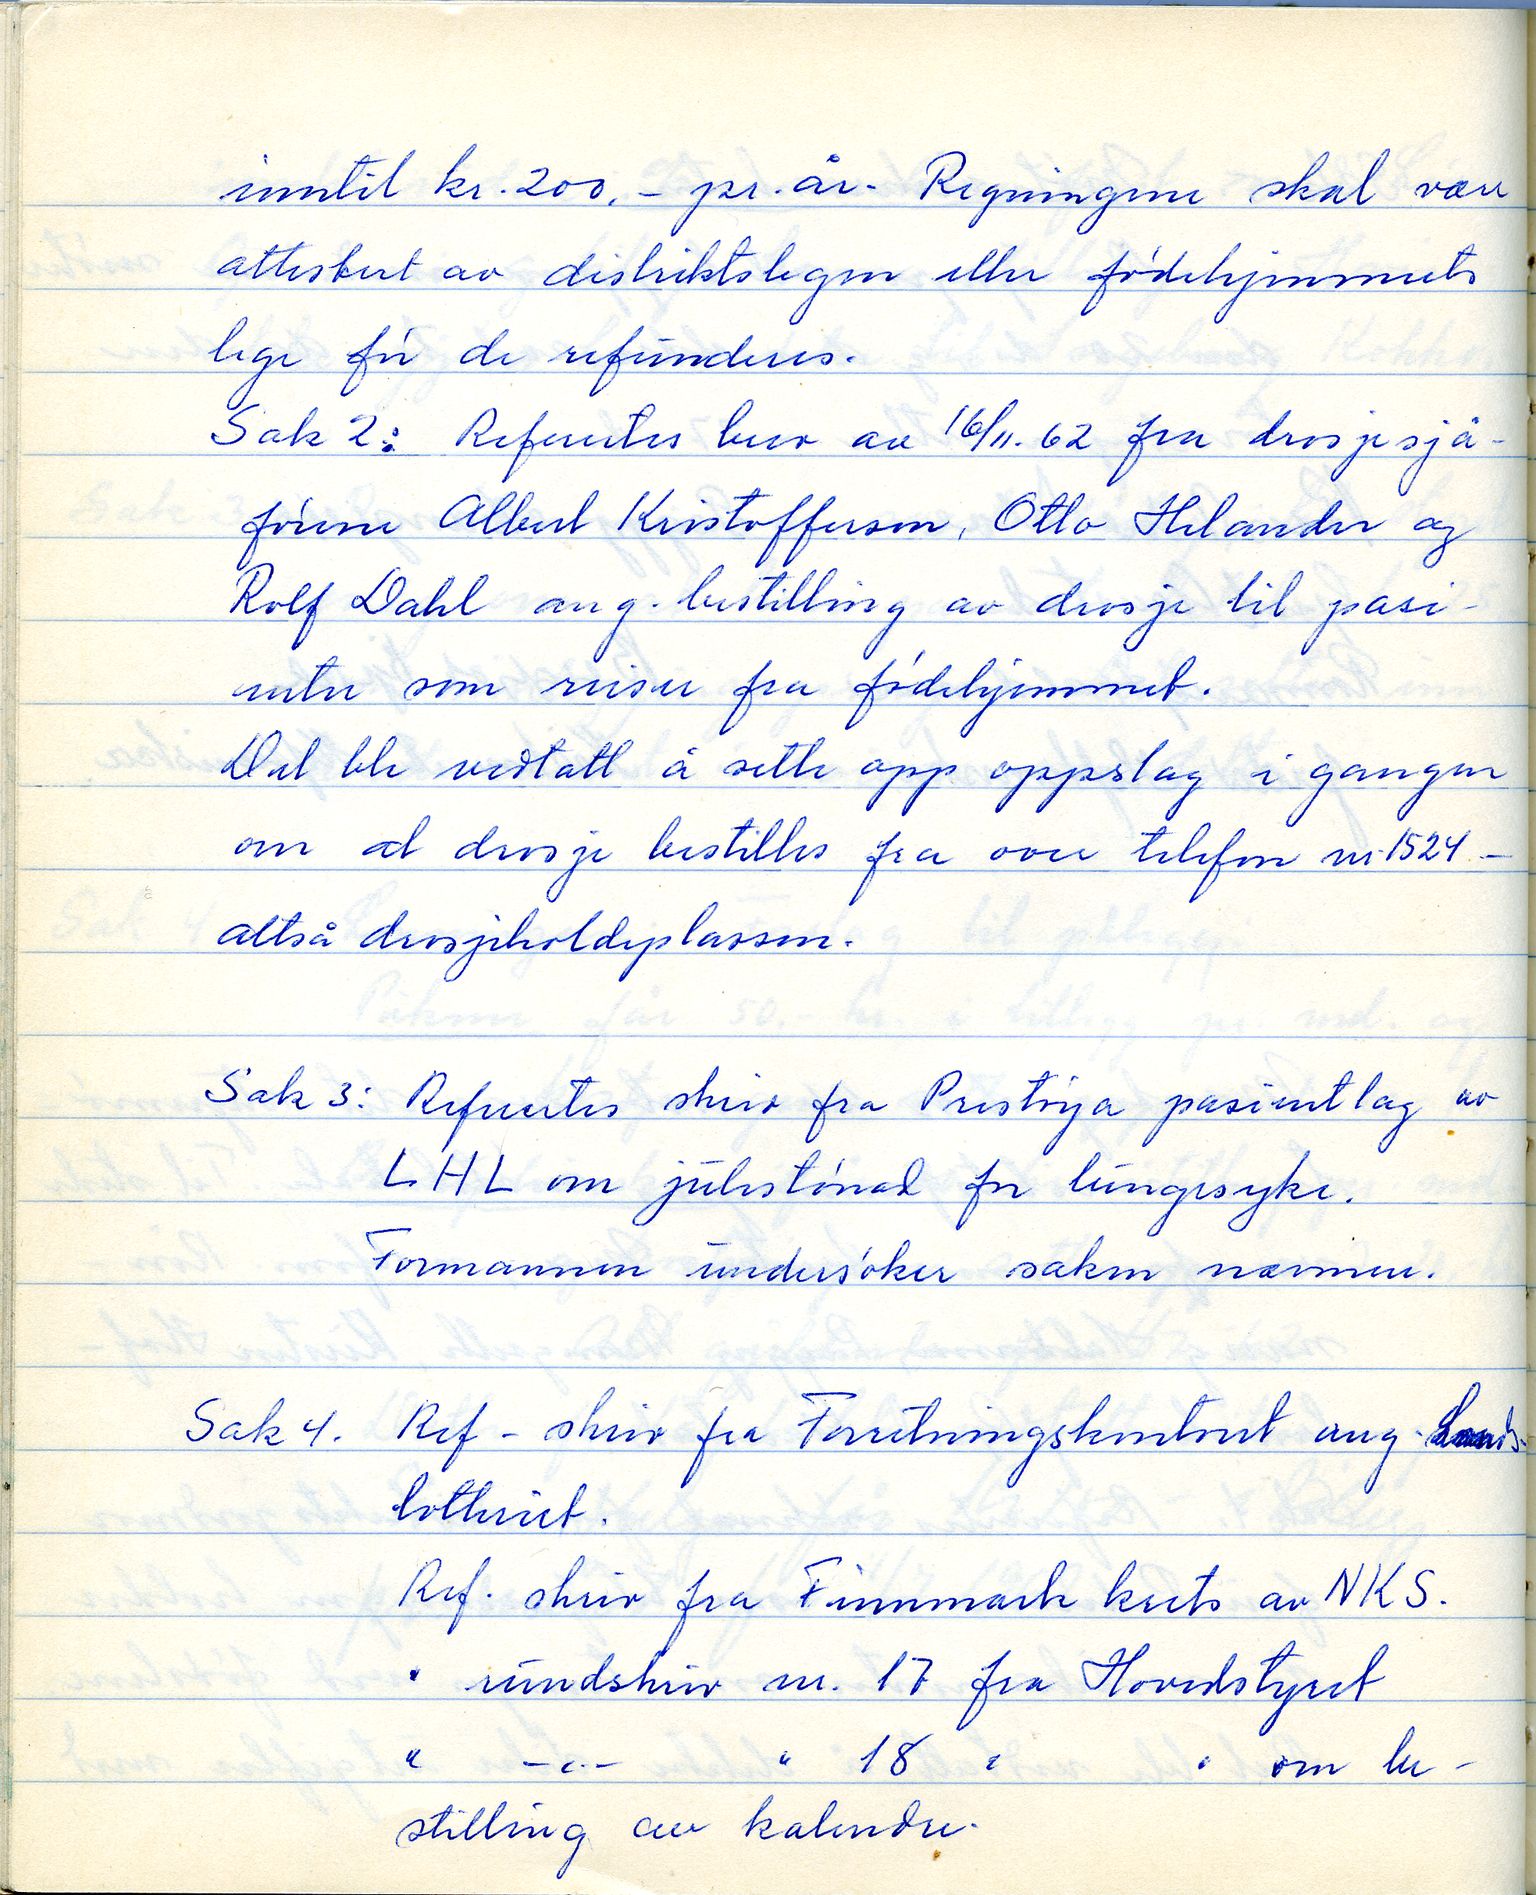 inntil kr. 200,- pr. år. Regningene skal være
attestert av distriktslegen eller fødehjemmets
lege før de refunderes.
Sak 2: Refertes brev av 16/11. 62 fra drosjesjå-
førene Albert Kristoffersen, Otto Helander og
Rolf Dahl ang. bestilling av drosje til pasi-
enter som reiser fra fødehjemmet.
Det ble vedtatt å sette opp oppslag i gangen
om at drosje bestilles fra over telefon nr. 1524 -
altså drosjeholdeplassen.
Sak 3: Refertes skriv fra Prestøya pasientlag av
LHL om julestønad for lungesyke.
Formannen undersøker saken nærmere.
Sak 4. Ref - skriv fra Forretningskontoret ang. Lands-
lotteriet.
Ref. skriv fra Finnmark krets av NKS.
" rundskriv nr. 17 fra Hovedstyret
" -"- " 18 " " om be-
stilling av kalendre.